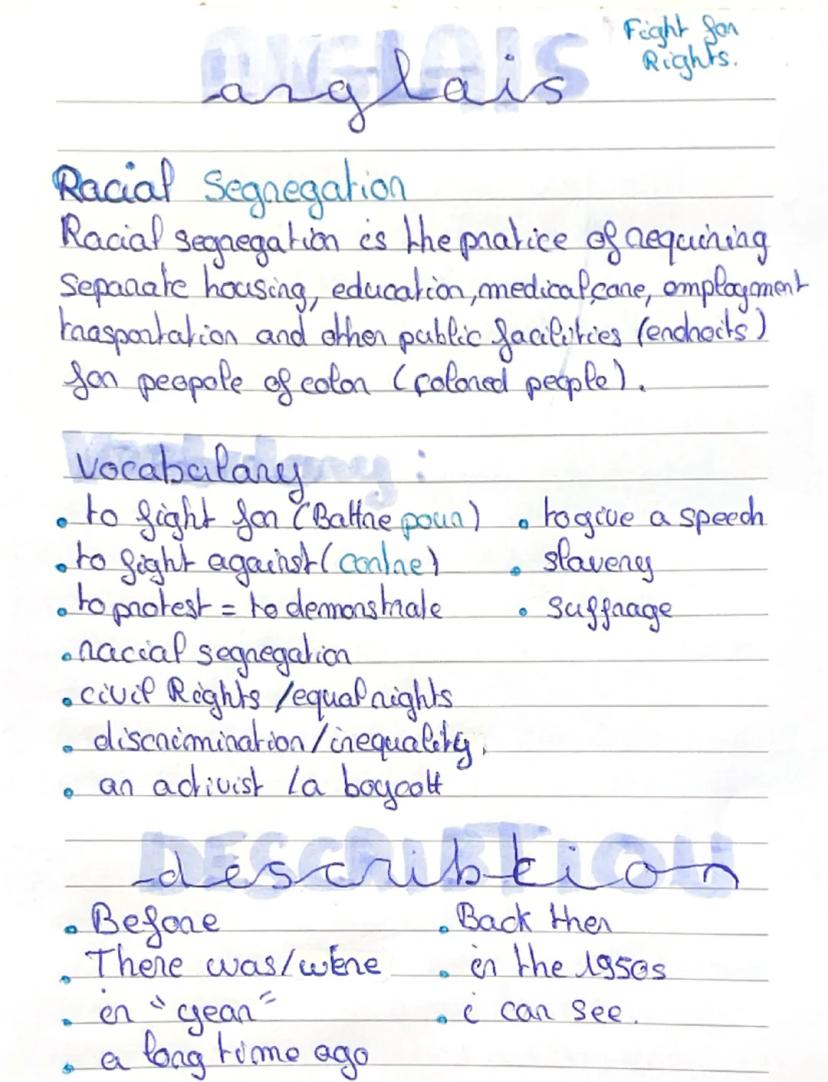 Fight for
Rights.
ANGLAIS
anglais
Racial Segregation
Racial segregation is the pratice of requiring
separate housing, education, medical care, employment
trasportation and other public facilities (endroits)
for peopole of color (colored people).
vocabulary :
• to fight for (Battre pour) • to give a speech
• to fight against (contre) • slavery
• to protest = to demonstrate • suffrage
• racial segregation
• civil Rights / equal rights
• discrimination / inequality.
• an activist / a boycott
DESCRIBTION
describtion
• Before • Back then
• There was/were • in the 1950s
• in "year" • i can see.
• a long time ago